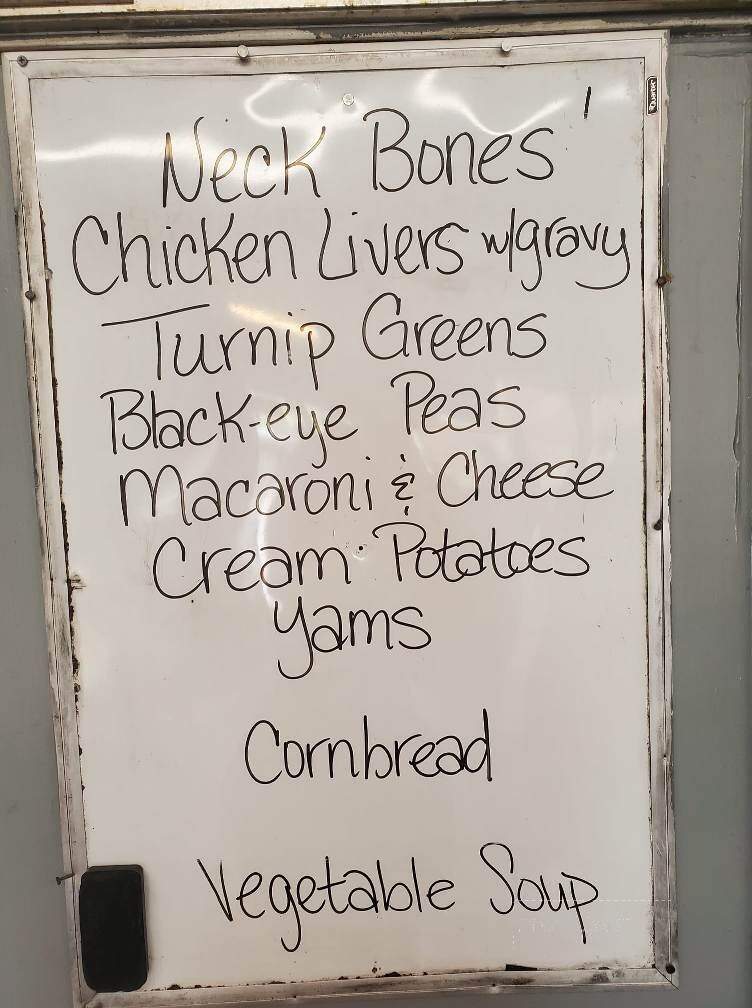 Neck Bones
Chicken Livers w/gravy
Turnip Greens
Black-eye Peas
Macaroni & Cheese
Cream Potatoes
Yams
Cornbread
Vegetable Soup
Quartet